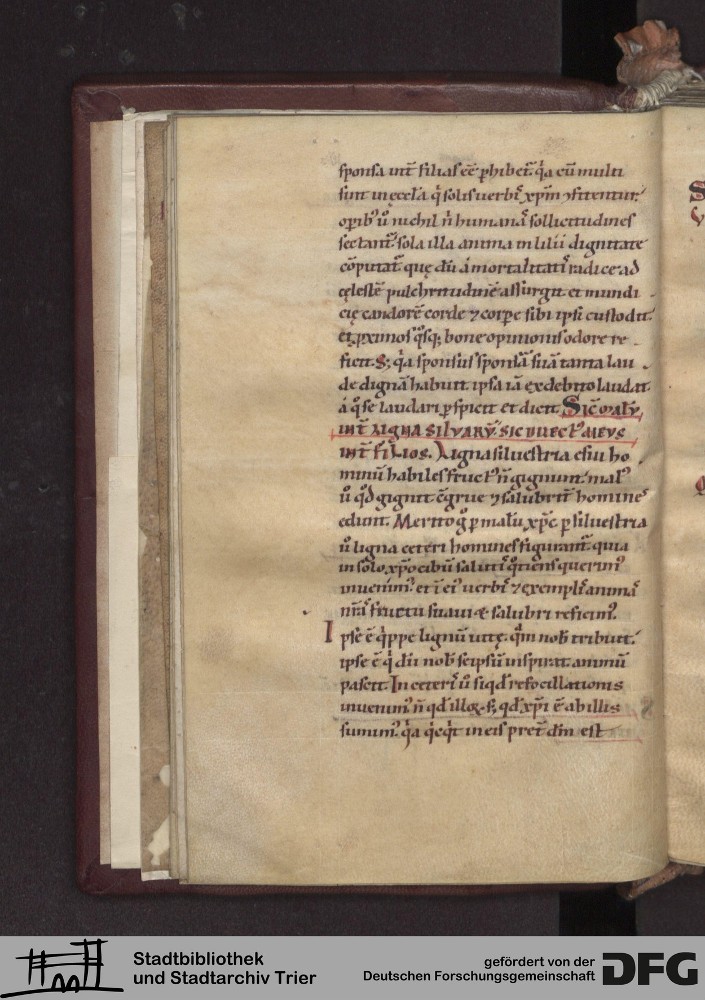 sponsa int̄ filias ēē ꝑhibet̄. q̇a cū multi
sint in ęcc̄la q̇ solis uerbis xp̄m ꝯfitentur.
oꝑib; ū nichil n̄ humanas sollicitudines
sectant̄. sola illa anima in lilii dignitate
cōputat̄. quę dū a mortalitatis radice ad
cęlestē pulchritudinē assurgit. et mundi
cię candorē corde ⁊ corꝑe sibi ipsi custodit.
et ꝓximos q̇sq; bone opinionis odore re
ficit. S; q̇a sponsus sponsā suā tanta lau
de dignā habuit. ipsa iā ex debito laudat
a q̇ se laudari ꝑspicit et dicit. Sic̄ malū
int̄ ligna silvarū. sic dilect᾽ mevs
int̄ filios. Ligna siluestria esui ho
minū habiles fruct᾽ n̄ gignunt. mal᾽
ū q̇d gignit ꝯgrue ⁊ salubrit̄ homines
edunt. Merito g̊ ꝑ malū xp̄c. ꝑ siluestria
ū ligna ceteri homines figurant̄. quia
in solo xp̄o cibū salutis q̇tiens querim᾽
inuenim᾽. et ī ei᾽ uerbis ⁊ exemplis animas
nr̄as fructu suaui & salubri reficim᾽.
Ipse ē q̇ppe lignū uitę. q̇m nob̄ tribuit.
ipse ē q̇ dū nob̄ seipsū inspirat animū
pascit. In ceteris ū siqd̄ refocillationis
inuenim᾽. n̄ qd̄ illoꝝ. s; qd̄ xp̄i ē ab illis
sumim᾽. q̇a q̇cq̇t in eis pret̄ dn̄m est
Stadtbibliothek
und Stadtarchiv Trier
gefördert von der
Deutschen Forschungsgemeinschaft
DFG